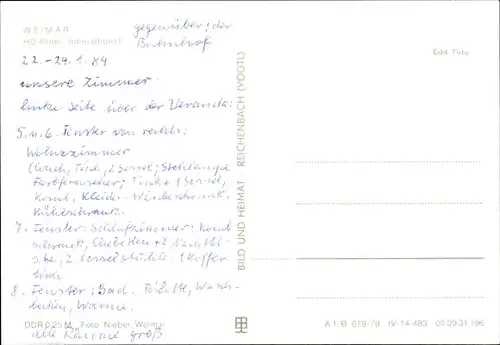 WEIMAR
HO-Hotel „International"
gegenüber: der
Bahnhof
Echt Foto
22.-24.1.84
unsere Zimmer:
linke Seite über der Veranda:
5. u. 6. Fenster von rechts:
Wohnzimmer
(Couch, Tisch, 2 Sessel; Stehlampe
Farbfernseher; Tisch + 1 Sessel,
Kom., Kleider- Wäscheschrank,
Kühlschrank.
7. Fenster: Schlafzimmer:
schrank, Ehebetten + 2 Nachtti-
sche, 2 Sesselstühle, 1 Koffer-
tisch
8. Fenster: Bad. Toilette, Wasch-
becken, Wanne.
alle Räume groß
BILD UND HEIMAT REICHENBACH (VOGTL)
DDR 0,25 M Foto Nieber, Weimar
A 1/B 619/78 IV-14-483 01 09 31 196